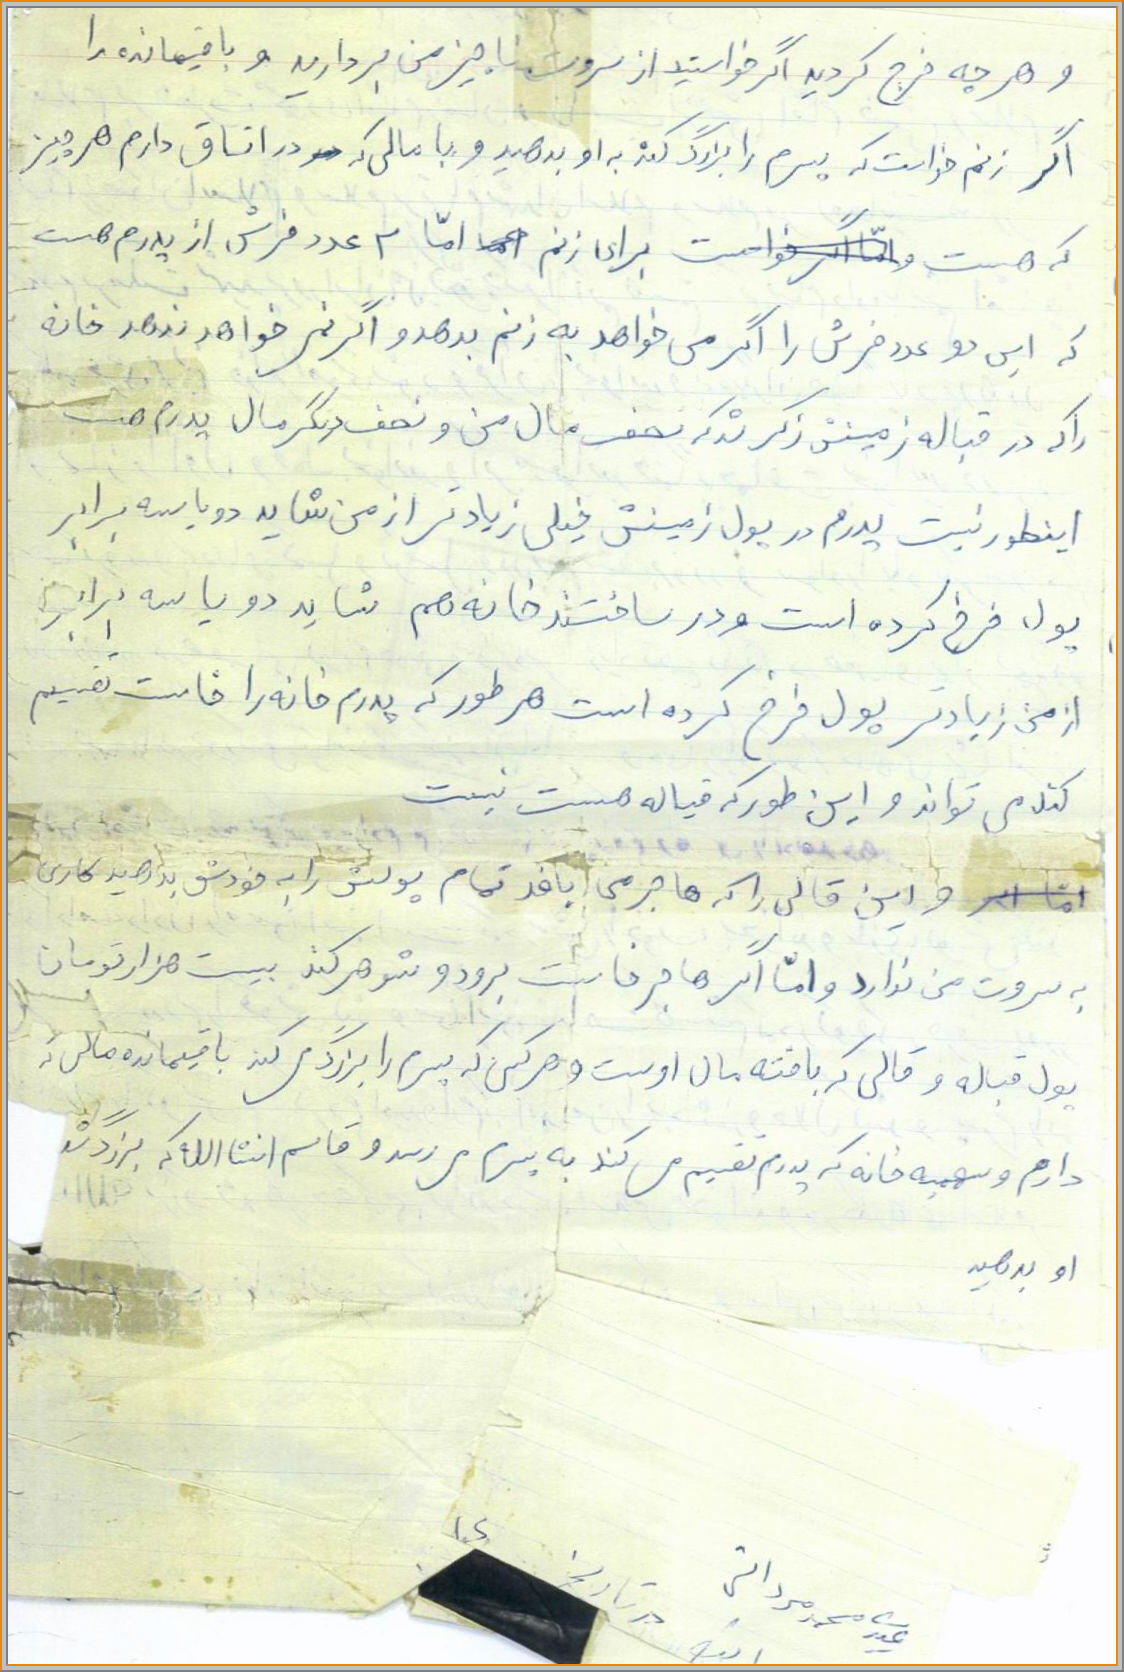 و هر چه خرج کردید اگر خواستید از سروت ناچیز من بردارید و باقیمانده را
اگر زنم خواست که پسرم را بزرگ کند به او بدهید و با مالی که در اتاق دارم هر چیز
که هست و امّا اگر خواست برای زنم امّا ۲ عدد فرش از پدرم هست
که این دو عدد فرش را اگر می خواهد به زنم بدهد و اگر نمی خواهد ندهد خانه
را که در قباله زمینش ذکر شد که نصف مال من و نصف دیگر مال پدرم هست
اینطور نیست پدرم در پول زمینش خیلی زیادتر از من شاید دو یا سه برابر
پول خرج کرده است و در ساختند خانه هم شاید دو یا سه برابر
از من زیادتر پول خرج کرده است هر طور که پدرم خانه را خاست تقسیم
کند می تواند و این طور که قباله هست نیست
امّا و این قالی را که هاجر می بافد تمام پولش را به خودش بدهید کاری
به سروت من ندارد و امّا اگر هاجر خاست برود و شوهر کند بیست هزار تومان
پول قباله و قالی که بافته مال اوست و هر کس که پسرم را بزرگ می کند باقیمانده مالی که
دارم و سهمیه خانه که پدرم تقسیم می کند به پسرم می رسد و قاسم انشاالله که بزرگ شد
او بدهید
محمد مردانی
در تاریخ